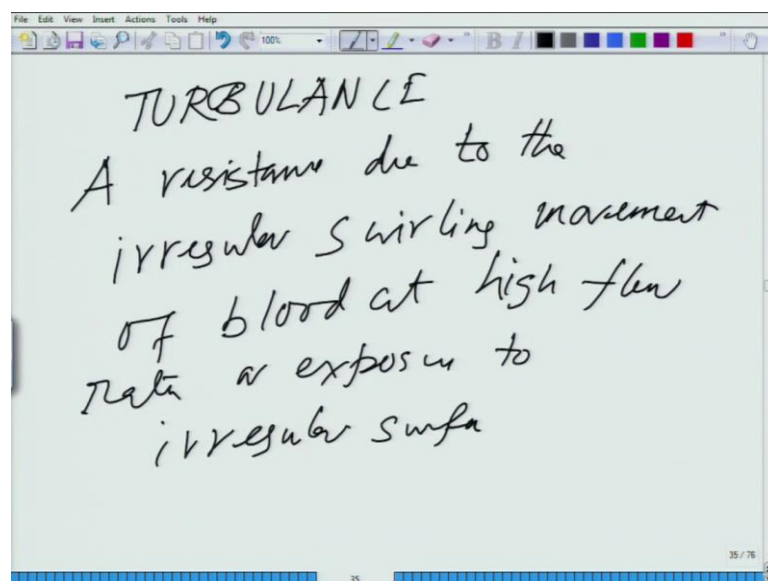 File Edit View Insert Actions Tools Help
100%
B I
TURBULANCE
A resistance due to the
irregular swirling movement
of blood at high flow
rate or exposure to
irregular surfa
35 / 76
35